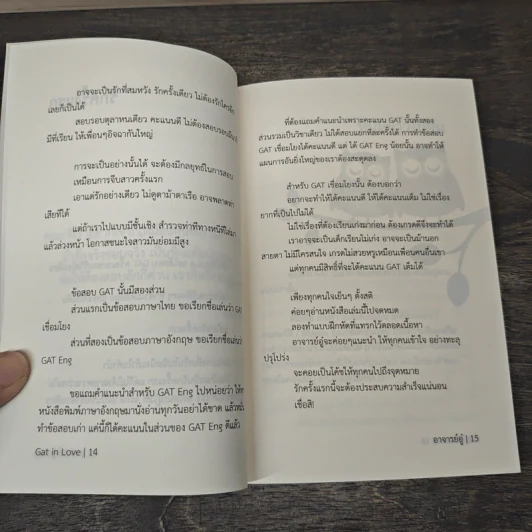 อาจจะเป็นรักที่สมหวัง รักครั้งเดียว ไม่ต้องรักใครอีก
เลยก็เป็นได้
สอบรอบตุลาหนเดียว คะแนนดี ไม่ต้องสอบรอบมีนา
มีที่เรียน ให้เพื่อนๆอิจฉากันใหญ่
การจะเป็นอย่างนั้นได้ จะต้องมีกลยุทธ์ในการสอบ
เหมือนการจีบสาวครั้งแรก
เอาแต่รักอย่างเดียว ไม่ดูตาม้าตาเรือ อาจพลาดท่า
เสียทีได้
แต่ถ้าเราไปแบบมีชั้นเชิง สำรวจท่าทีทางหนีทีไล่มา
แล้วล่วงหน้า โอกาสชนะใจสาวมันย่อมมีสูง
ข้อสอบ GAT นั้นมีสองส่วน
ส่วนแรกเป็นข้อสอบภาษาไทย ขอเรียกชื่อเล่นว่า GAT
เชื่อมโยง
ส่วนที่สองเป็นข้อสอบภาษาอังกฤษ ขอเรียกชื่อเล่นว่า
GAT Eng
ขอแถมคำแนะนำสำหรับ GAT Eng ไปหน่อยว่า ให้หา
หนังสือพิมพ์ภาษาอังกฤษมานั่งอ่านทุกวันอย่าได้ขาด แล้วหมั่น
ทำข้อสอบเก่า แค่นี้ก็ได้คะแนนในส่วนของ GAT Eng ดีแล้ว
Gat in Love | 14
ที่ต้องแถมคำแนะนำเพราะคะแนน GAT นั้นทั้งสอง
ส่วนรวมเป็นวิชาเดียว ไม่ได้สอบแยกทีละครั้งได้ การทำข้อสอบ
GAT เชื่อมโยงได้คะแนนดี แต่ ได้ GAT Eng น้อยนั้น อาจทำให้
แผนการอันยิ่งใหญ่ของเราต้องสะดุดลง
สำหรับ GAT เชื่อมโยงนั้น ต้องบอกว่า
อยากจะทำให้ได้คะแนนดี ให้ได้คะแนนเต็ม ไม่ใช่เรื่อง
ยากที่เป็นไปไม่ได้
ไม่ใช่เรื่องที่ต้องเรียนเก่งมาก่อน ต้องเกรดดีจึงจะทำได้
เราอาจจะเป็นเด็กเรียนไม่เก่ง อาจจะเป็นม้านอก
สายตา ไม่มีใครสนใจ เกรดไม่สวยหรูเหมือนเพื่อนคนอื่นเขา
แต่ทุกคนมีสิทธิ์ที่จะได้คะแนน GAT เต็มได้
เพียงทุกคนใจเย็นๆ ตั้งสติ
ค่อยๆอ่านหนังสือเล่มนี้ไปจดหมด
ลองทำแบบฝึกหัดที่แทรกไว้ตลอดเนื้อหา
อาจารย์อู๋จะค่อยๆแนะนำ ให้ทุกคนเข้าใจ อย่างทะลุ
ปรุโปร่ง
จะคอยเป็นโค้ชให้ทุกคนไปถึงจุดหมาย
รักครั้งแรกนี้จะต้องประสบความสำเร็จแน่นอน
เชื่อสิ!
อาจารย์อู๋ | 15